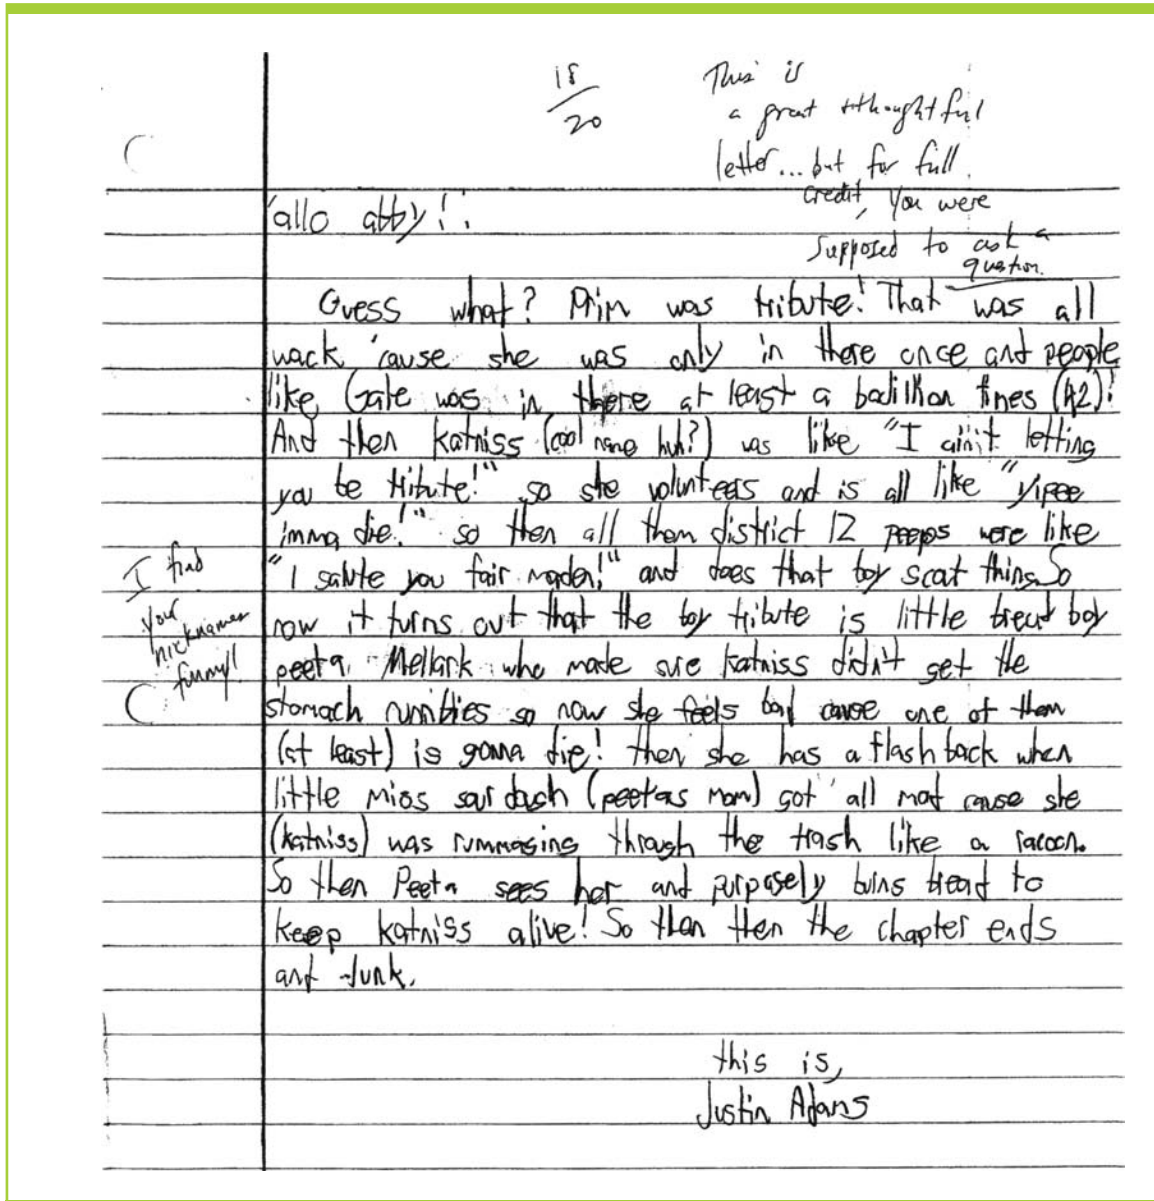 18
20
This is
a great thoughtful
letter... but for full
credit, you were
supposed to ask a
question.
'allo abby!!
Guess what? Prim was tribute! That was all
wack 'cause she was only in there once and people
like Gale was in there at least a badillion times (42)!
And then katniss (cool name huh?) was like "I ain't letting
you be tribute!" so she volunteers and is all like "yipee
imma die!" so then all them district 12 peeps were like
"I salute you fair maden!" and does that boy scat thing. So
now it turns out that the boy tribute is little bread boy
peeta Mellark who made sure katniss didn't get the
stomach rumblies so now she feels bad cause one of them
(at least) is gonna die! then she has a flash back when
little miss sour dough (peetas mom) got all mad cause she
(katniss) was rummasing through the trash like a racoon.
So then Peeta sees her and purpasely burns bread to
keep katniss alive! So then then the chapter ends
and junk.
I find
your
nicknames
funny!
this is,
Justin Adams